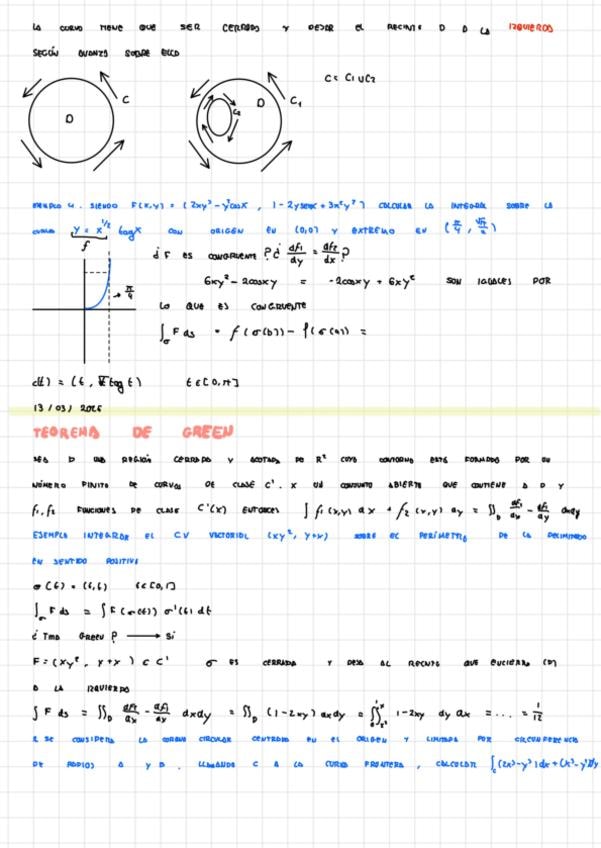 LA CURVA TIENE QUE SER CERRADA Y DEJAR EL RECINTO D A LA IZQUIERDA
SEGÚN AVANZO SOBRE ELLA
C = C1 ∪ C2
D C
C2 D C1
EJEMPLO 4. SIENDO F(x,y) = (2xy³ - y²cosx, 1 - 2ysenx + 3x²y²) CALCULAR LA INTEGRAL SOBRE LA
CURVA y = x^1/2 tagx CON ORIGEN EN (0,0) Y EXTREMO EN
f
¿ F ES CONGRUENTE ? ¿ df1/dy = df2/dx ?
6xy² - 2cosxy = -2cosxy + 6xy² SON IGUALES POR
π/4
LO QUE ES CONGRUENTE
∫σ F ds = f(σ(b)) - f(σ(a)) =
t ∈ [0,
13/03/
TEOREMA DE GREEN
SEA D UNA REGIÓN CERRADA Y ACOTADA DE R² CUYO CONTORNO ESTÁ FORMADO POR UN
NÚMERO FINITO DE CURVAS DE CLASE C¹. X UN CONJUNTO ABIERTO QUE CONTIENE A D Y
f1, f2 FUNCIONES DE CLASE C¹(X) ENTONCES ∫ f1(x,y) dx + f2(x,y) dy = ∬D
EJEMPLO INTEGRAR EL CV VECTORIAL (xy², y+x) SOBRE EL PERÍMETRO DE LA
EN SENTIDO POSITIVO
σ(t) = (t,t) t ∈ [0,1]
∫σ F ds = ∫ F(σ(t)) σ'(t) dt
¿ Tma GREEN ? → Sí
F = (xy², y+x) C C¹ σ ES CERRADA Y DEJA AL RECINTO QUE ENCIERRA (D)
A LA IZQUIERDA
∫ F ds = ∬D dxdy = ∬D (1-2xy) dxdy = 1-2xy dy dx = ... = 1/12
SE CONSIDERA LA CORONA CIRCULAR CENTRADA EN EL ORIGEN Y LIMITADA POR CIRCUNFERENCIA
DE RADIOS Y LLAMANDO C A LA CURVA FRONTERA, CALCULAR ∫c (2x³-y³)dx + (x³-y³)dy